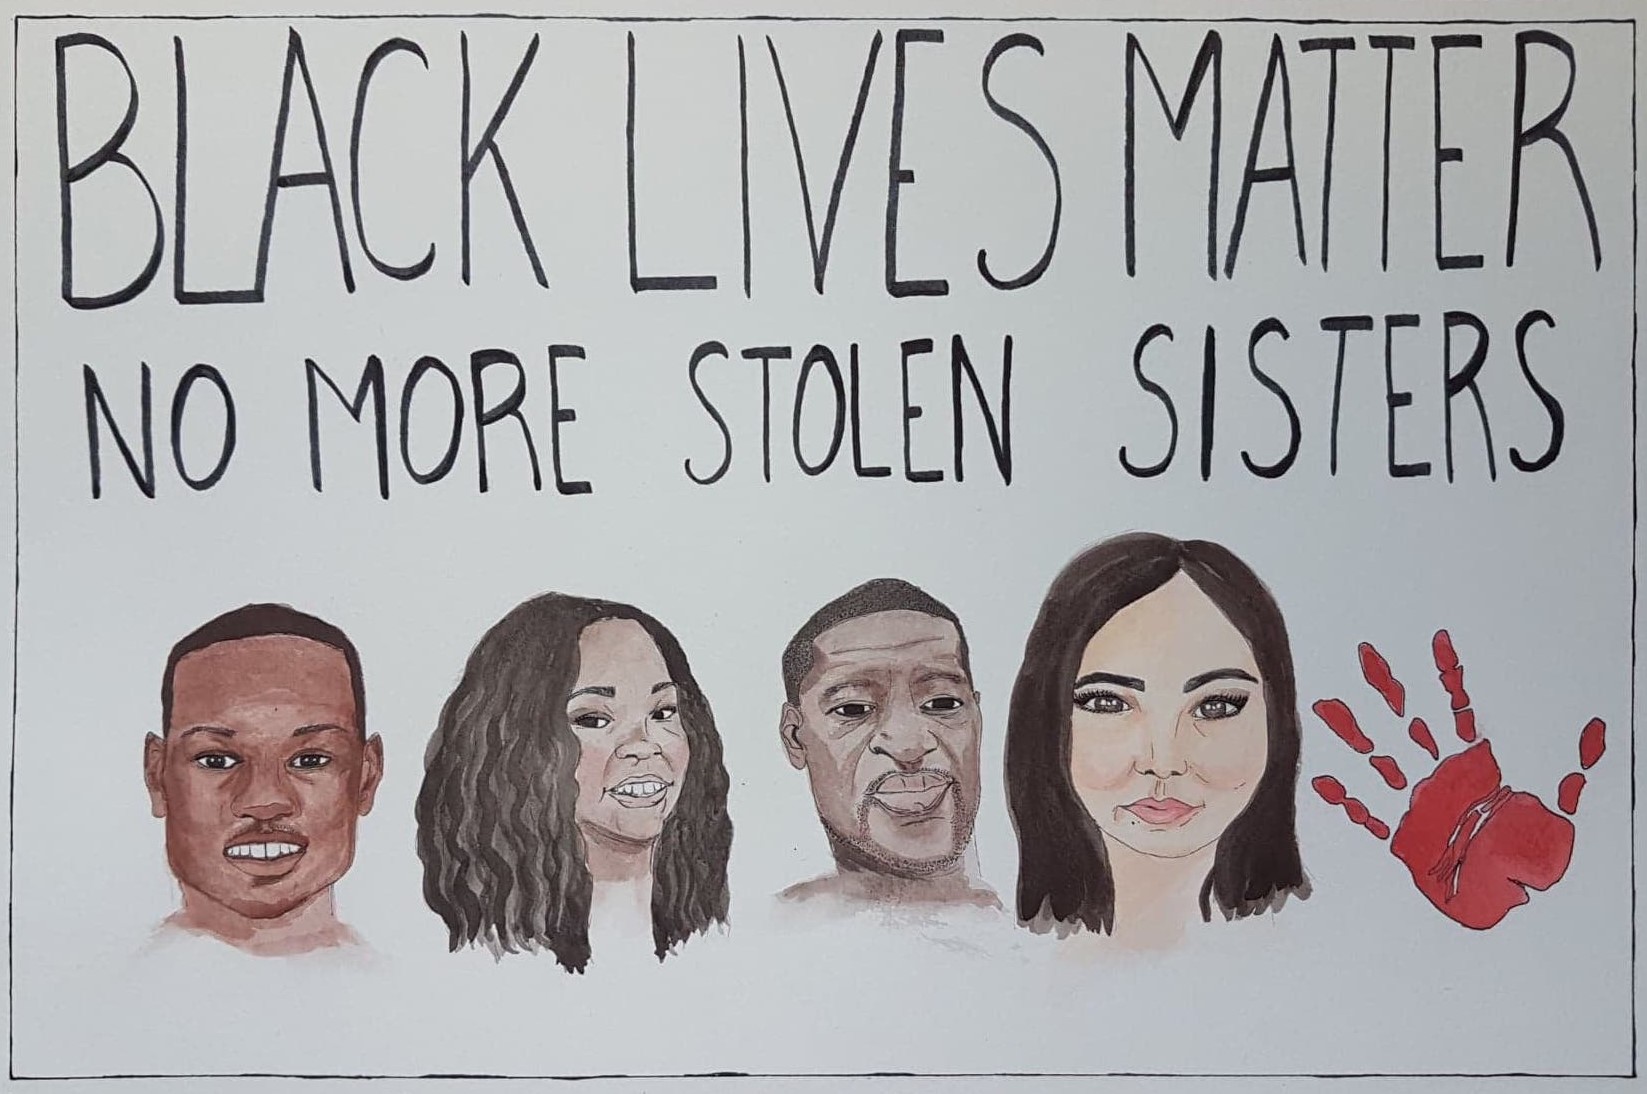 BLACK LIVES MATTER
NO MORE STOLEN SISTERS